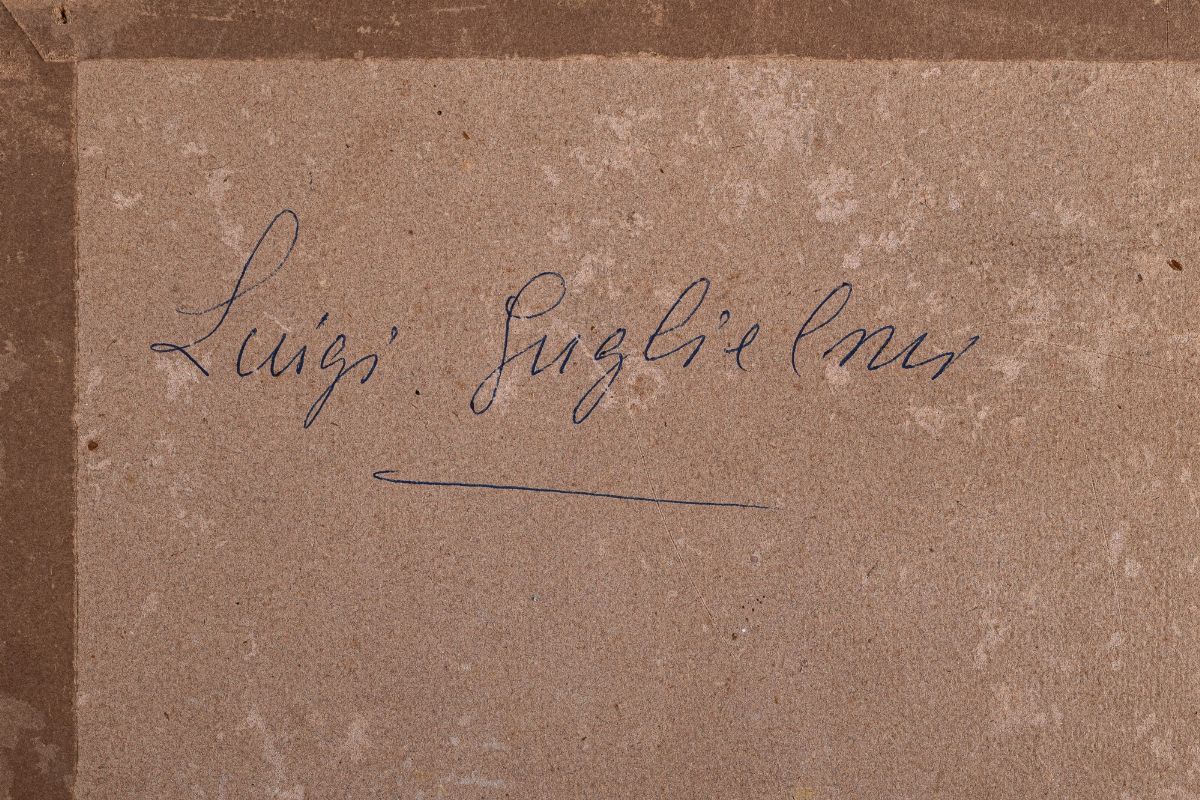 Luigi Guglielmi